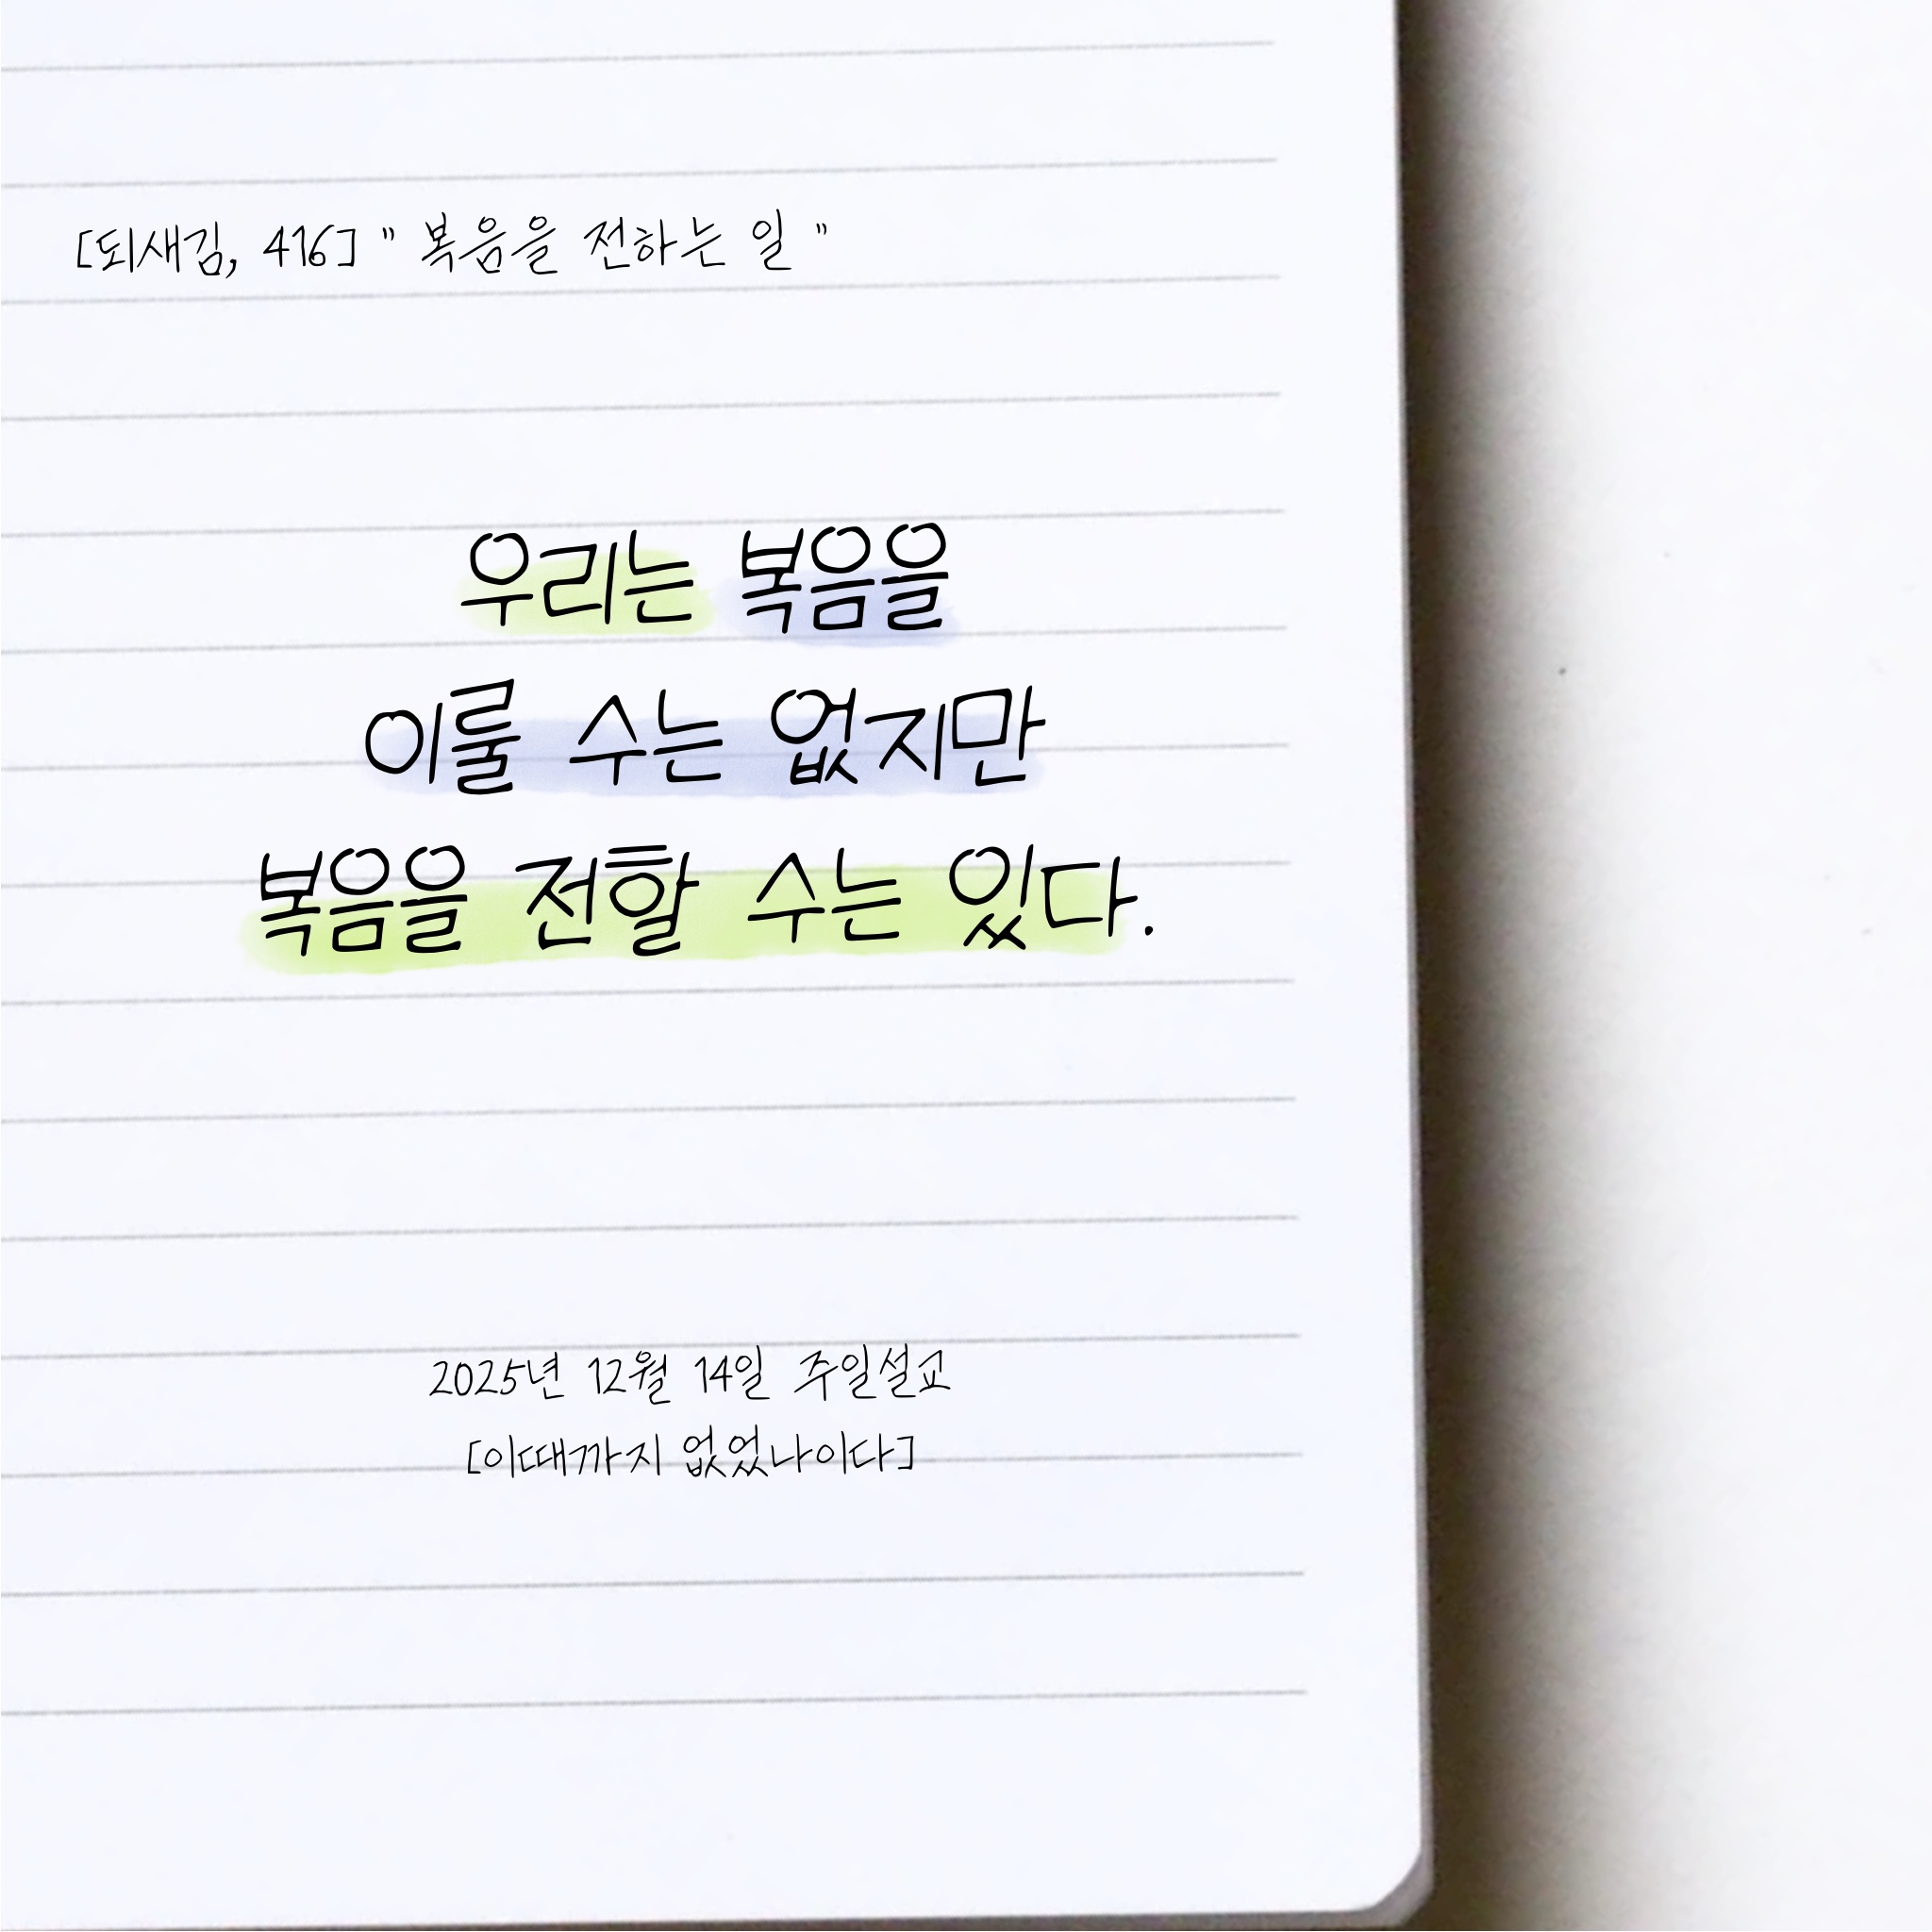 [되새김, 416] " 복음을 전하는 일 "
우리는 복음을
이룰 수는 없지만
복음을 전할 수는 있다.
2025년 12월 14일 주일설교
[이때까지 없었나이다]